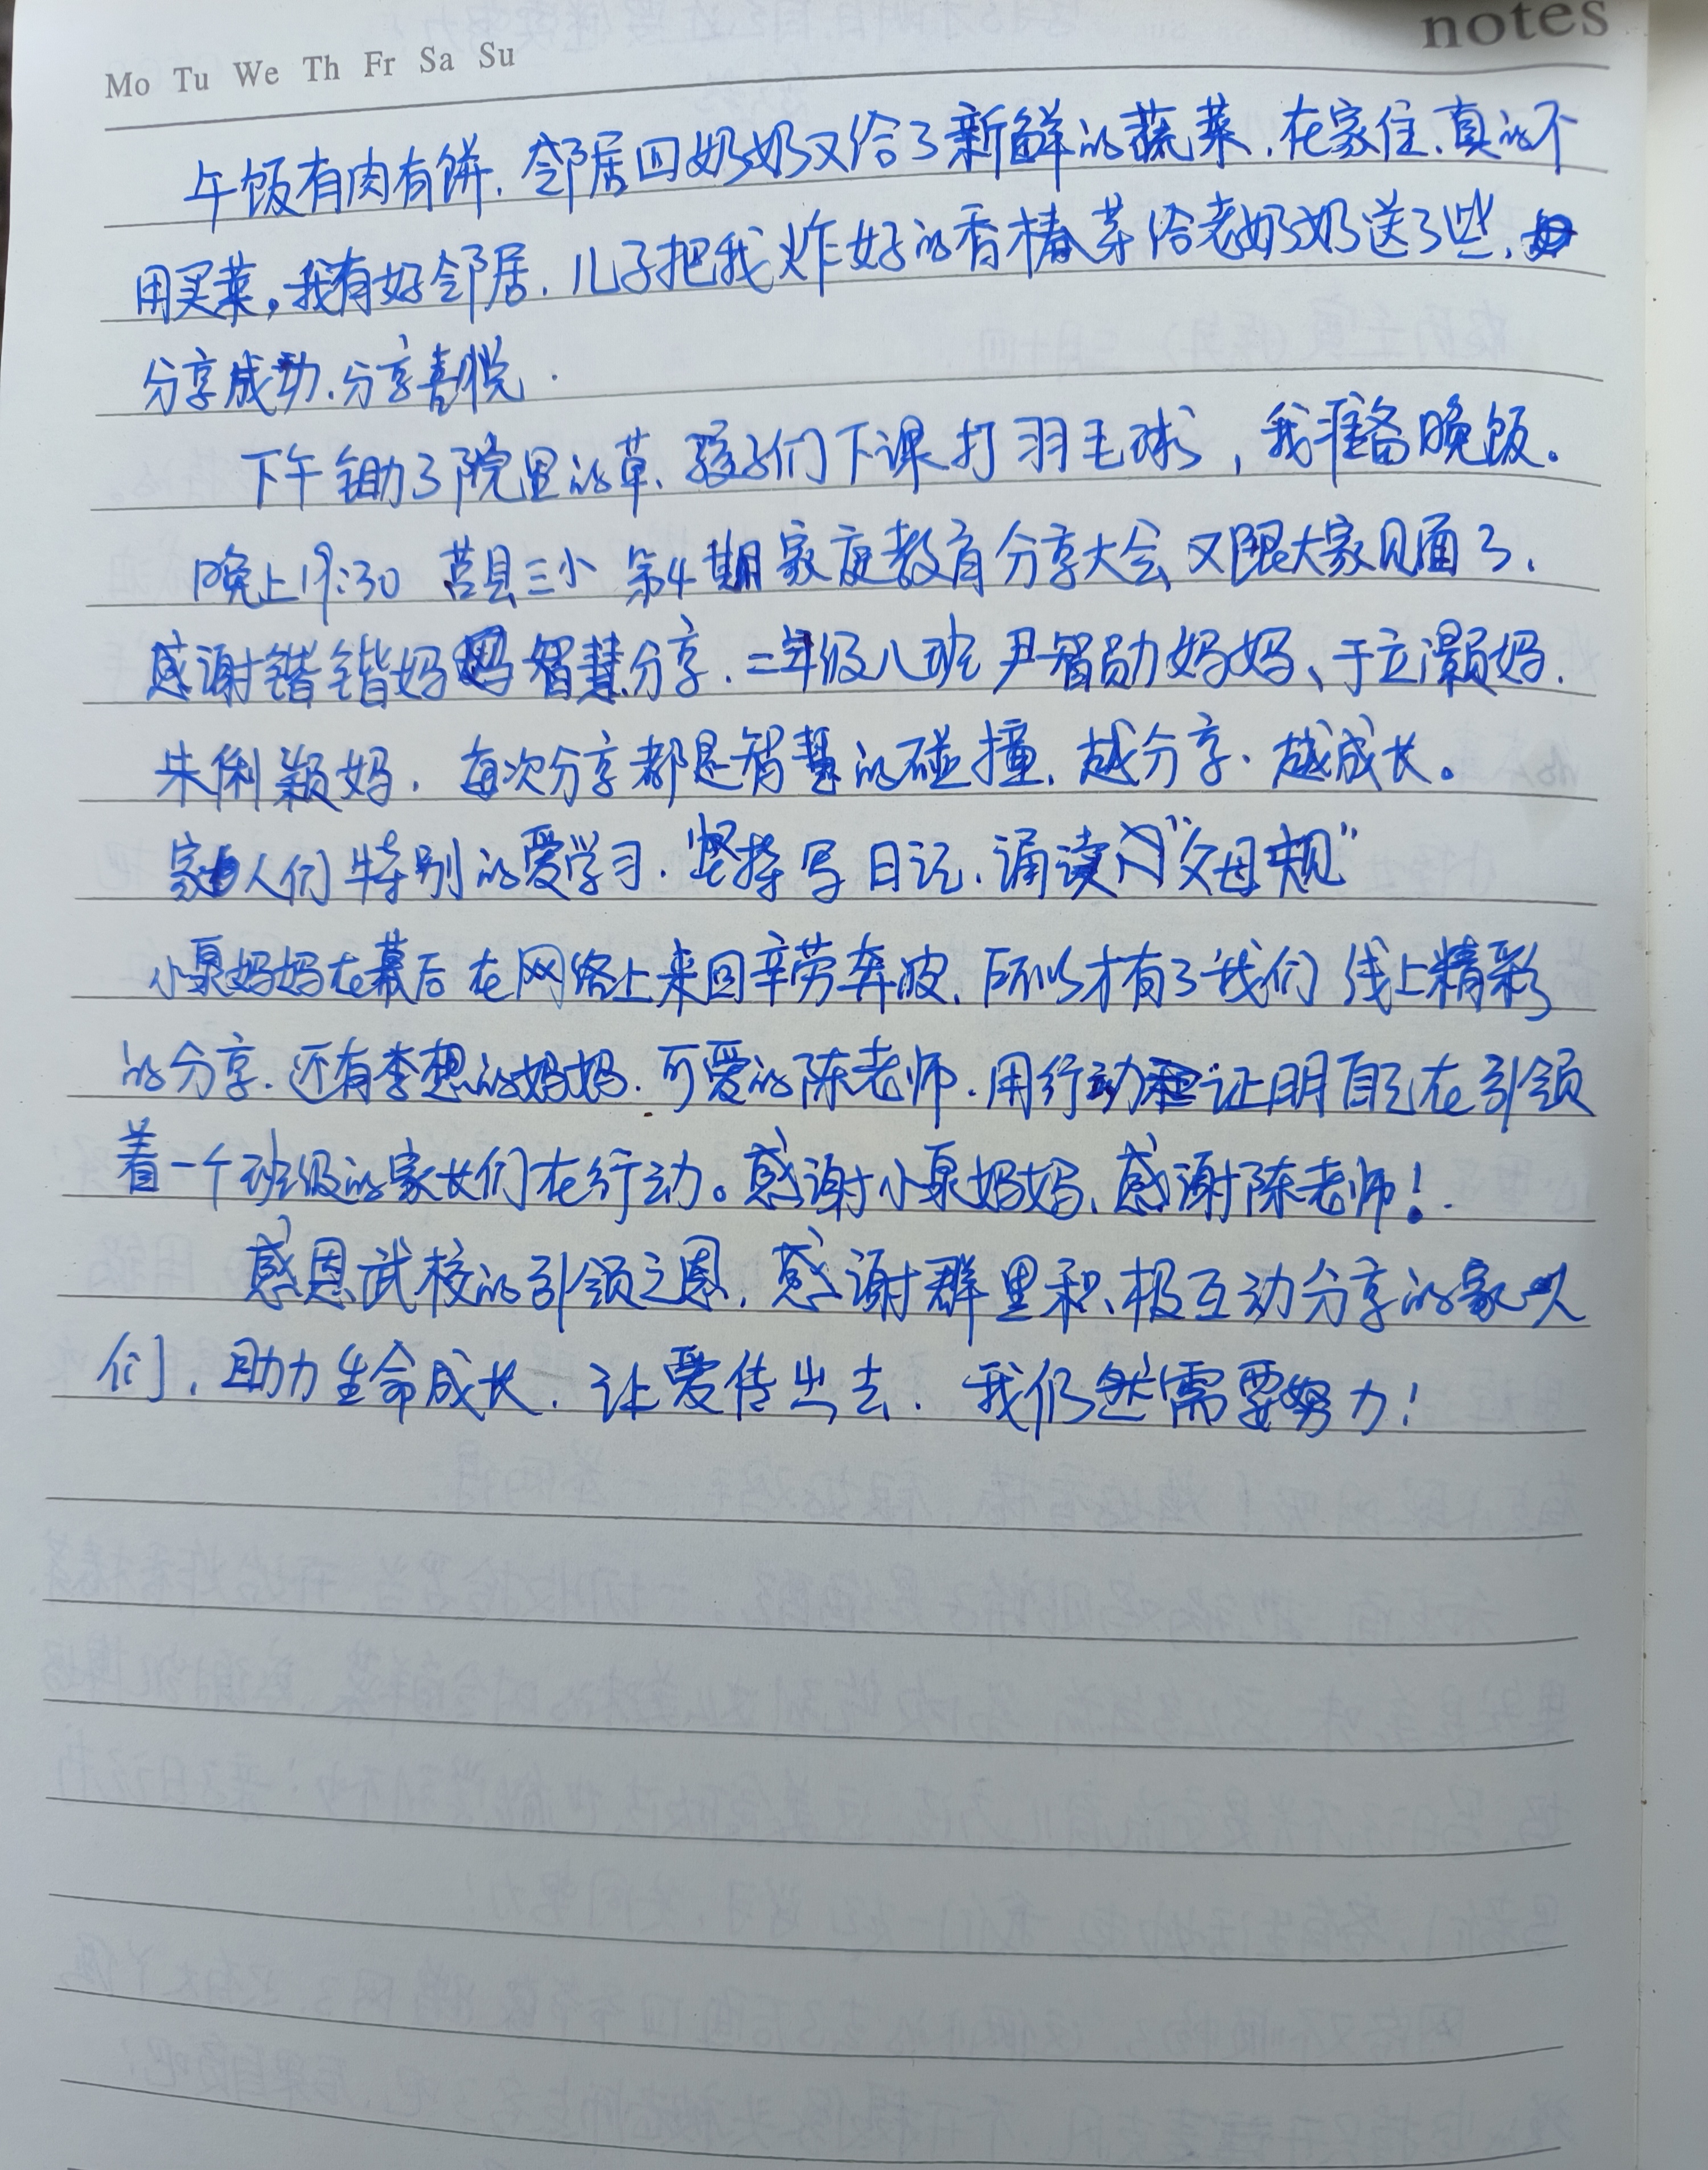 notes
Mo Tu We Th Fr Sa Su
午饭有肉有饼.邻居四奶奶又给了新鲜的蔬菜.在家住.真的不
用买菜。我有好邻居.儿子把我炸好的香椿芽给老奶奶送了些.
分享成功.分享喜悦.
下午锄了院里的草.孩子们下课打羽毛球,我准备晚饭。
晚上19:30 莒县三小 第4期家庭教育分享大会又跟大家见面了.
感谢锴锴妈妈智慧分享.二年级八班尹智勋妈妈、于立灏妈.
朱俐颖妈.每次分享都是智慧的碰撞.越分享.越成长。
家人们特别的爱学习.坚持写日记.诵读"父母规"
小泉妈妈在幕后在网络上来回辛劳奔波.所以才有了我们线上精彩
的分享.还有李想的妈妈.可爱的陈老师.用行动证明自己在引领
着一个班级的家女们在行动。感谢小泉妈妈.感谢陈老师!.
感恩武校的引领之恩.感谢群里积极互动分享的家人
们.助力生命成长.让爱传出去.我们需要努力!